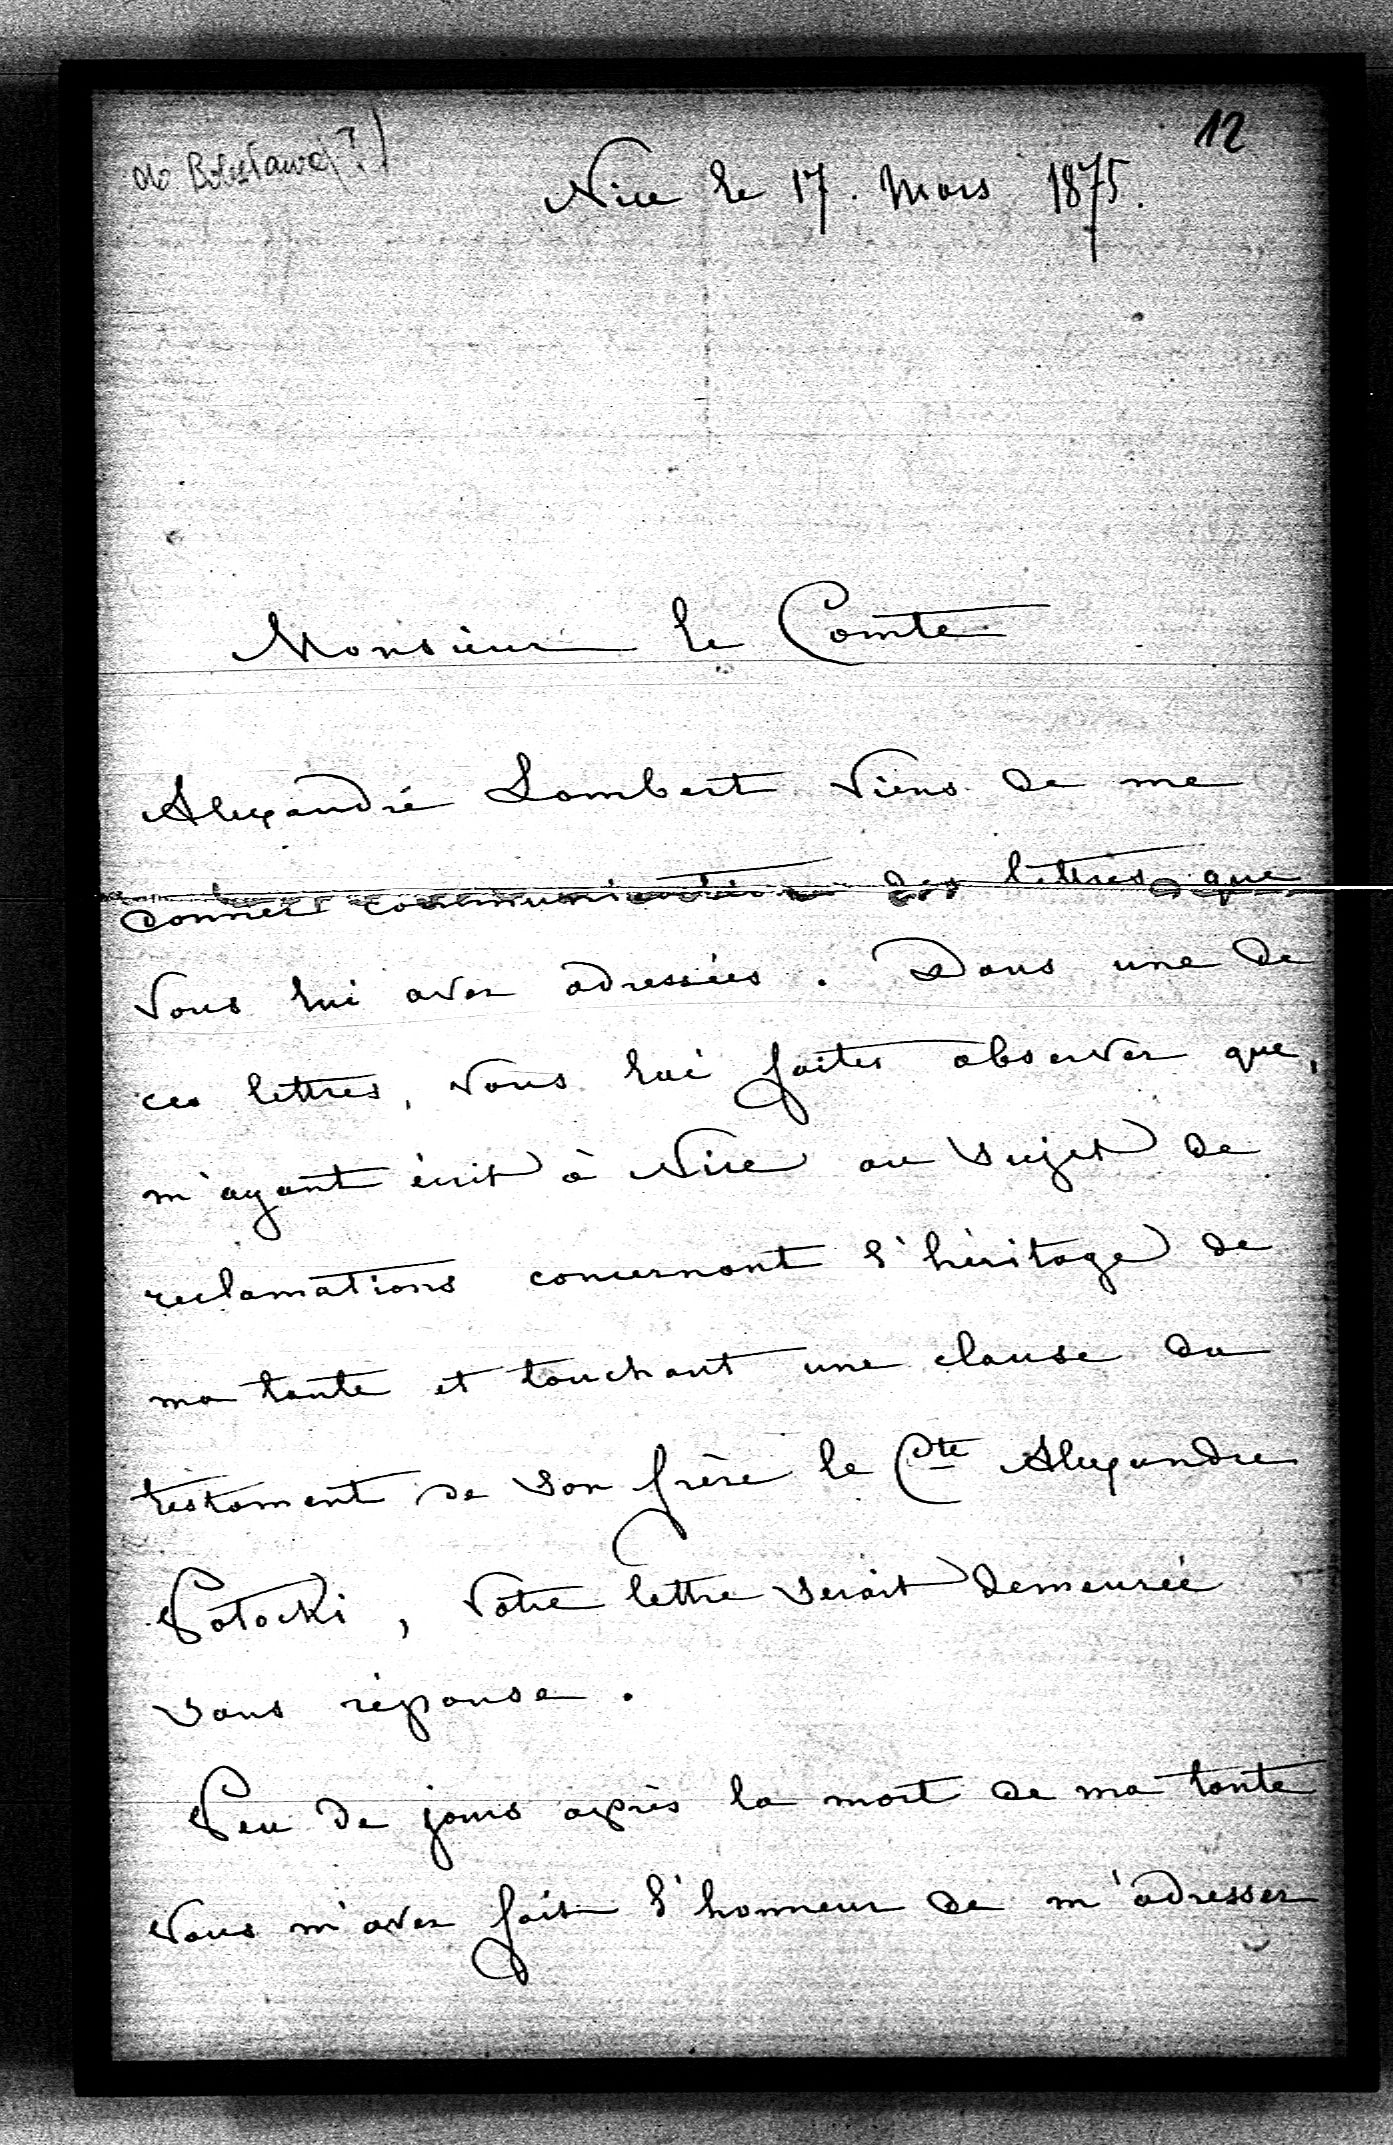 do Bolesława(?)
12
Nice le 17. Mars 1875.
Monsieur le Comte
Alexandre Lambert viens de me
donner communication des lettres que
vous lui avez adressées. Dans une de
ces lettres, vous lui faites observer que,
m'ayant écrit à Nice au sujet de
reclamations concernant l'héritage de
ma tante et touchant une clause du
testament de son frère le Cte Alexandre
Potocki, votre lettre serait demeurée
sans réponse.
Peu de jours après la mort de ma tante
vous m'avez fait l'honneur de m'adresser